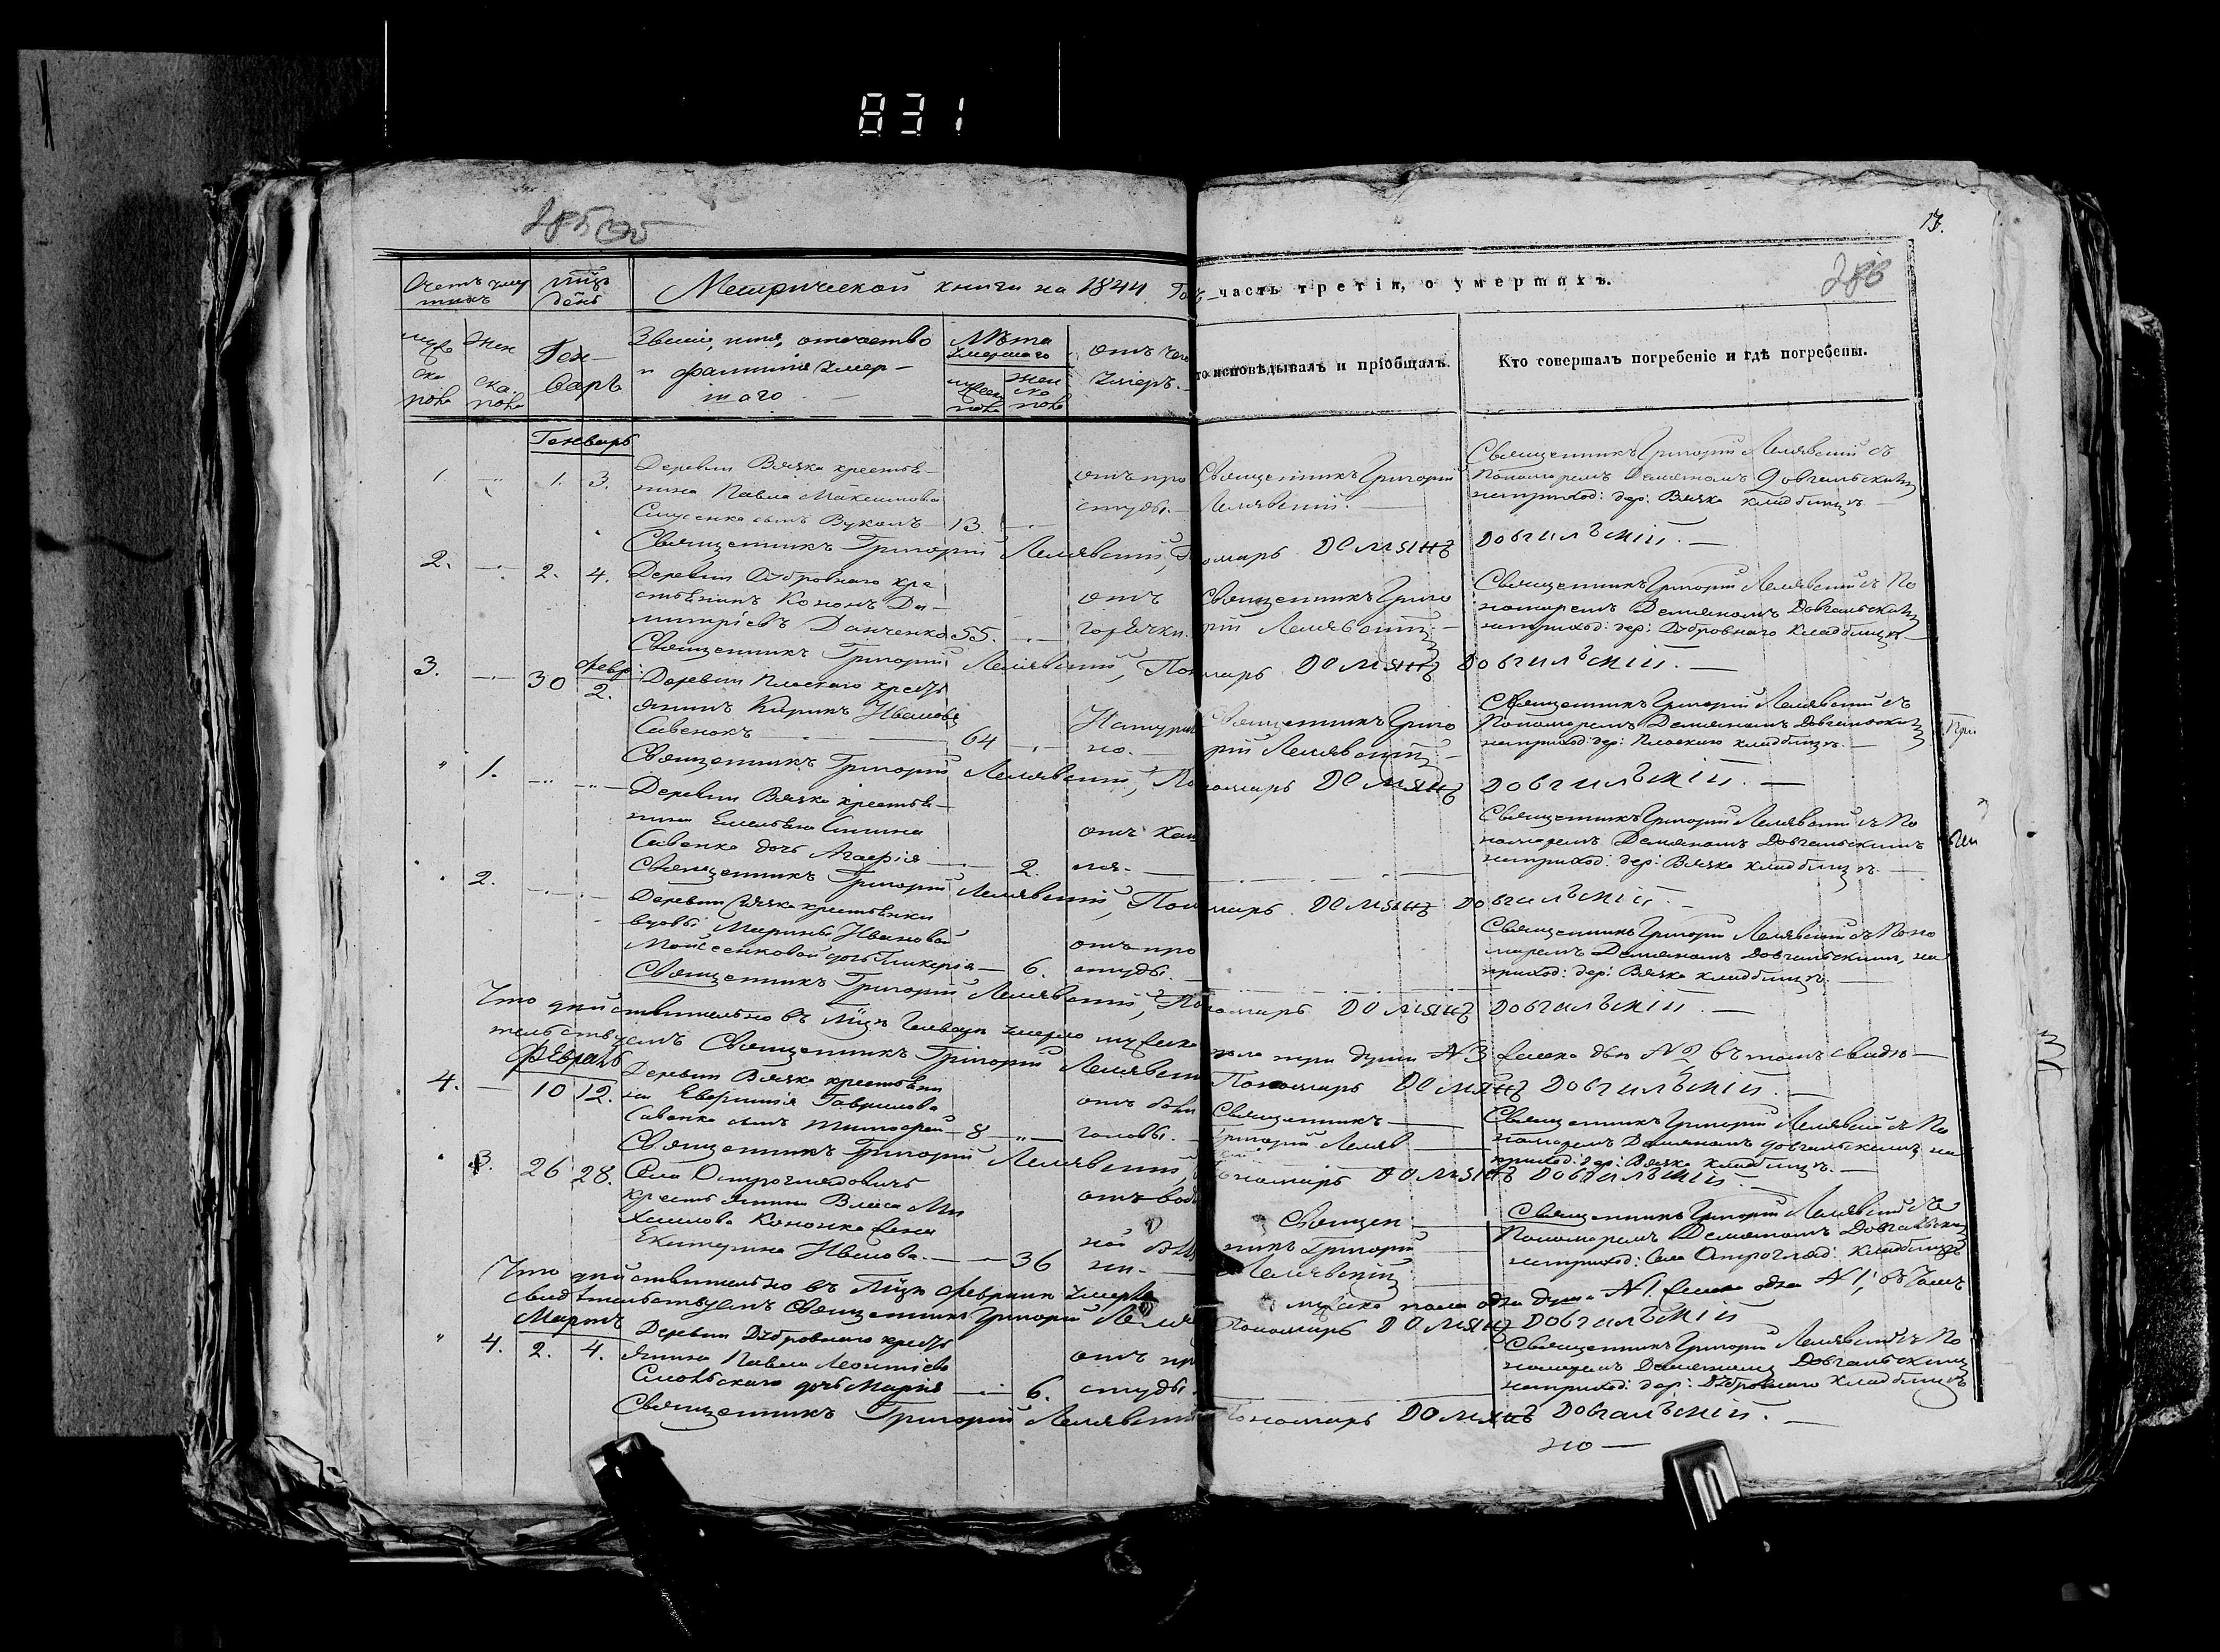 831
285
17.
286
Метрической книги на 1844 Годъ часть третія, о умершихъ.
Мѣсяцъ день
Генварь
Званіе, имя, отечество и фамилія умершаго
Лѣта умершаго
отъ чего умеръ.
то исповѣдывалъ и пріобщалъ.
Кто совершалъ погребеніе и гдѣ погребены.
Генварь
1. 1. 3.
Деревни Вязка крестья-
нина Павла Максимова
сынъ Вуколъ 13
отъ про
студы.
Священникъ Григорій
Лелявский.
Священникъ Григорій Лелявский съ
Пономаремъ Демяномъ Довгальскимъ
на приход: дер: Вязка кладбищѣ
Священникъ Григорій Лелявский, Пономарь Демянъ Довгилъский.
2. 2. 4.
Деревни Дубровнаго кре
стьянинъ Кононъ Ди-
митріевъ Данченко 55.
отъ
горячки.
Священникъ Григо
рій Лелявский
Священникъ Григорій Лелявский съ По
номаремъ Демяномъ Довгальскимъ
на приход: дер: Дубровнаго кладбищѣ
Священникъ Григорій Лелявский, Пономарь Демянъ Довгилъский.
3. 30 Февр: 2.
Деревни Плоскаго кресть
янинъ Кирикъ Ивановъ
Савенокъ 64
Натураль
но.
Священникъ Григо
рій Лелявский
Священникъ Григорій Лелявский съ
Пономаремъ Демяномъ Довгальскимъ
на приход: дер: Плоскаго кладбищѣ.
Священникъ Григорій Лелявский, Пономарь Демянъ Довгилъский.
1.
Деревни Вязка крестья-
нина Емельяна
Савенка дочь Агафія 2.
отъ каш
ля.
Священникъ Григорій Лелявский съ По
номаремъ Демяномъ Довгальскимъ
на приход: дер: Вязка кладбищѣ.
Священникъ Григорій Лелявский, Пономарь Демянъ Довгилъский.
2.
Деревни Вязка крестьянки
вдовы Марины Ивановой
Мойсеенковой дочь Гликерія 6.
отъ про
студы.
Священникъ Григорій Лелявский съ Поно
маремъ Демяномъ Довгальскимъ, на
приход: дер: Вязка кладбищѣ.
Священникъ Григорій Лелявский, Пономарь Демянъ Довгилъский.
Что дѣйствительно въ мцѣ Генварѣ умерло мужеска пола три души №3 женска двѣ №2 въ томъ свидѣ-
тельствуемъ Священникъ Григорій Лелявский Пономарь Демянъ Довгилъский.
Февраль
4. 10 12.
Деревни Вязка крестьяни
на Евфимія Гаврилова
Савенка сынъ Тимофей 8
отъ боли
головы.
Священникъ
Григорій Леляв
Священникъ Григорій Лелявский съ По
номаремъ Демяномъ Довгальскимъ на
приход: дер: Вязка кладбищѣ.
Священникъ Григорій Лелявский, Пономарь Демянъ Довгилъский
3. 26 28.
Села Остроглядовичъ
крестьянина Власа Ми
хайлова Кононка жена
Екатерина Иванова. 36
отъ водя
ной болѣ
зни.
Священ
никъ Григорий
Лелявский
Священникъ Григорій Лелявский съ
Пономаремъ Демяномъ Довгальским
на приход: села Острогляд: кладбищѣ
Что дѣйствительно въ мцѣ Февралѣ умерло мужеска пола одна душа №1 женска одна №1, въ томъ
свидѣтельствуемъ Священникъ Григорій Лелявский Пономарь Демянъ Довгилъский
Мартъ
4. 2. 4.
Деревни Дубровнаго кресть
янина Павла Леонтіева
дочь Марія 6.
отъ про
студы.
Священникъ Григорій Лелявский съ По
номаремъ Демяномъ Довгальскимъ
на приход: дер: Дубровнаго кладбищѣ
Священникъ Григорій Лелявский Пономарь Демянъ Довгалъский.